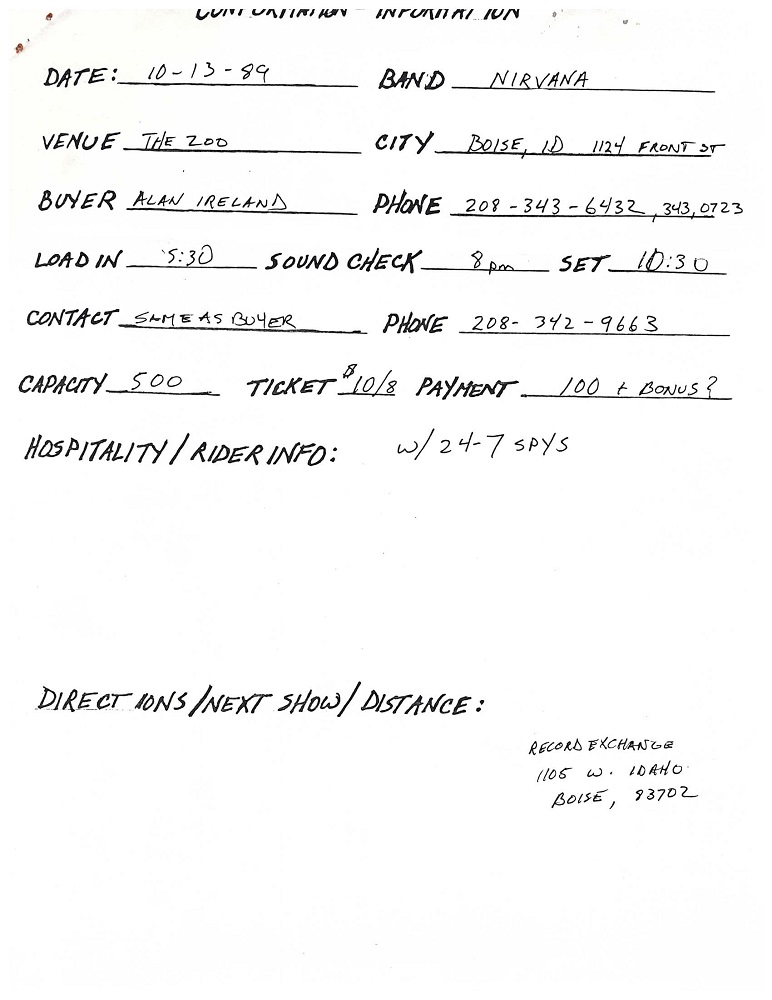 CONFORMATION - INFORMATION
DATE: 10-13-89 BAND NIRVANA
VENUE THE ZOO CITY BOISE, ID 1124 FRONT ST
BUYER ALAN IRELAND PHONE 208-343-6432, 343,0723
LOAD IN 5:30 SOUND CHECK 8pm SET 10:30
CONTACT SAME AS BUYER PHONE 208-342-9663
CAPACITY 500 TICKET $10/8 PAYMENT 100 + BONUS?
HOSPITALITY/RIDER INFO: w/ 24-7 SPYS
DIRECTIONS/NEXT SHOW/DISTANCE:
RECORD EXCHANGE
1105 W. IDAHO
BOISE, 83702